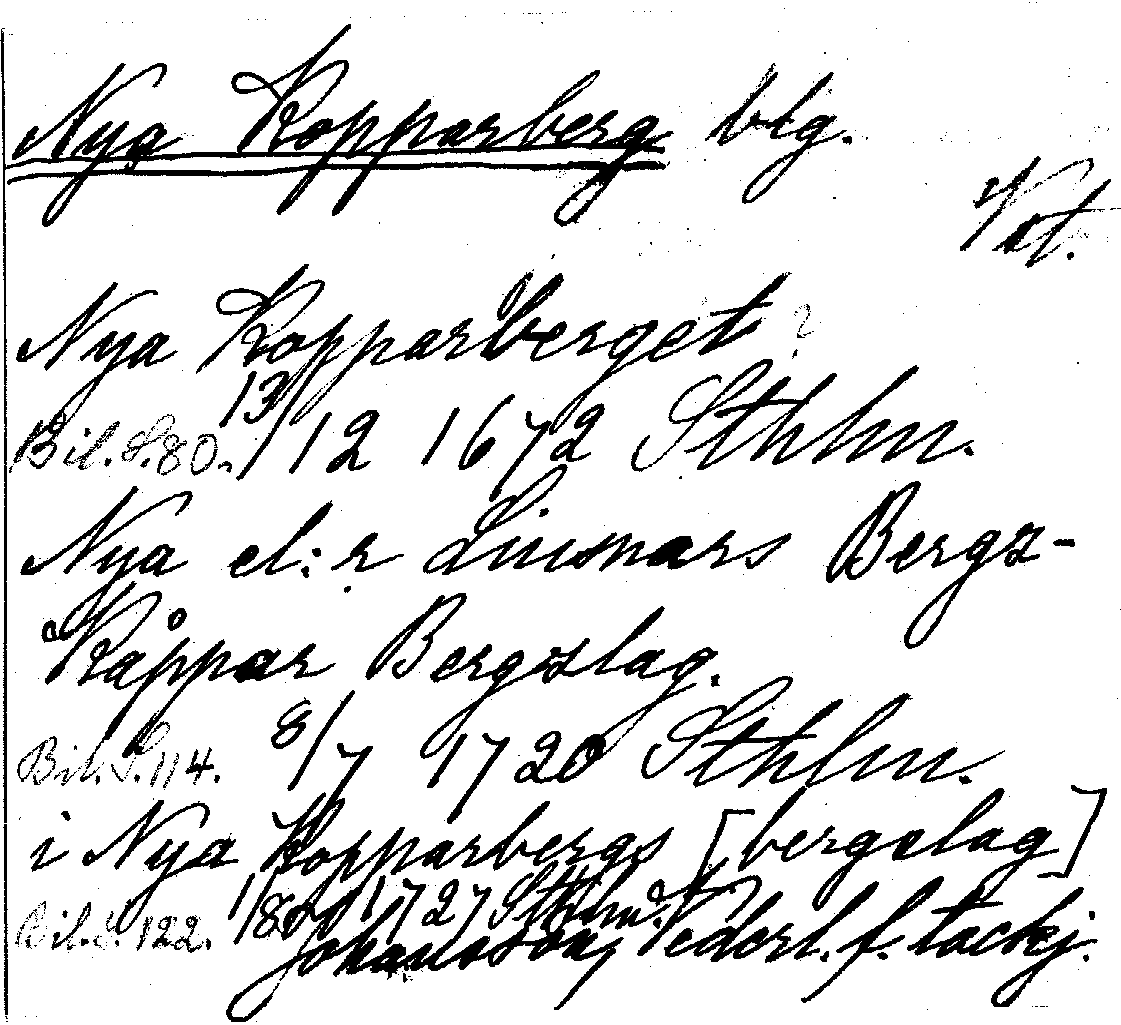 Nya Kopparberg btg.
Vst.
Nya Kopparberget ?
Bil. S. 80. 13/12 1672 Sthlm.
Nya el:r Liusnars Bergz-
Kåppar Bergzlag.
Bil. S. 114. 8/7 1720 Sthlm.
i Nya Kopparbergs [bergslag]
Bil. S. 122. 1/8 1727 Sthlm.
Johansson, Federl. f. tackj.